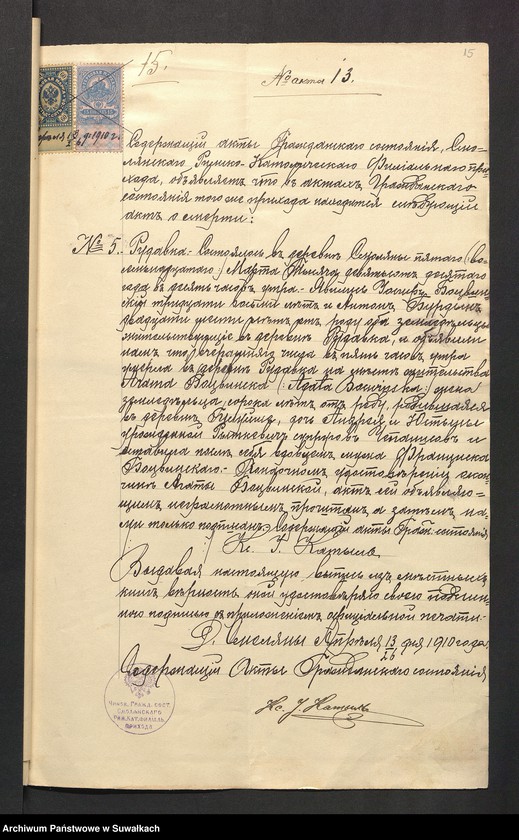 15.
15
№ акта 13.
Апреля 13/26 д. 1910 г.
Содержащій акты Гражданскаго состоянія, Смо-
лянскаго Римско-Католическаго Филіальнаго при-
хода, объявляетъ что въ актахъ Гражданскаго
состоянія того же прихода находится слѣдующій
актъ о смерти:
№ 5. Рудавка. Состоялось въ деревнѣ Смоляны пятаго (во-
семнадцатаго) Марта Тысяча девятьсотъ десятаго
года въ десять часовъ утра. Явились Бацвин-
скій тридцати восьми лѣтъ и Антонъ
двадцати шести лѣтъ отъ роду оба земледѣльцы
жительствующіе въ деревнѣ Рудавка, и объявили
намъ что вчерашняго числа въ пять часовъ утра
умерла въ деревнѣ Рудавка на мѣстѣ жительства
Агата Бацвинска (Agata ) жена
земледѣльца, сорока лѣтъ отъ роду, родившаяся
въ деревнѣ дочь Андрея и
урожденной супруговъ и
оставивъ послѣ себя вдовцемъ мужа Францишка
Бацвинскаго. По наочномъ удостовѣреніи о кон-
чинѣ Агаты Бацвинской, актъ сей объявляю-
щимъ неграмотнымъ прочитанъ, а затѣмъ на-
ми только подписанъ. Содержащій акты Гражд. состоянія
Кс. І. Катыль
Выдавая настоящую выпись изъ
книгъ, вѣрность оной удостовѣряю своею подлин-
ною подписью съ приложеніемъ оффиціальной печати.
Д. Смоляны Апрѣля 13/26 дня 1910 года.
Содержащій Акты Гражданскаго состоянія
Кс. І. Катыль
Чинов. Гражд. сост.
Смолянскаго
Рим. Кат. Филиал.
прихода
Archiwum Państwowe w Suwałkach